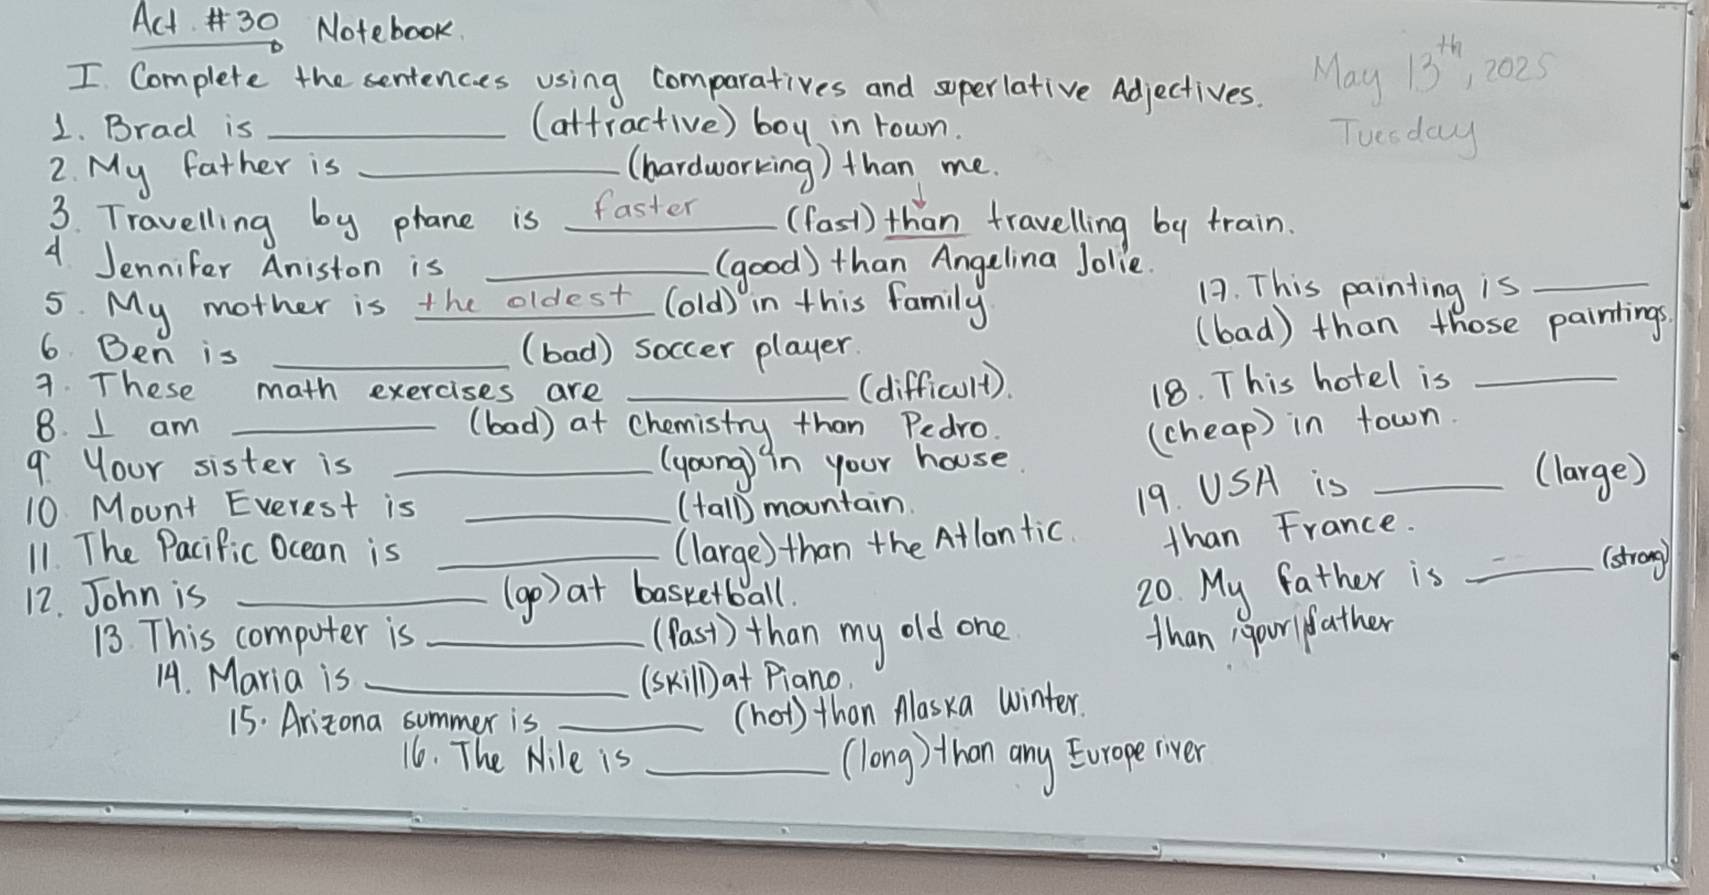 Act. #30 Notebook.
May 13th, 2025
Tuesday
I. Complete the sentences using comparatives and superlative Adjectives.
1. Brad is __________ (attractive) boy in town.
2. My father is __________ (hardworking) than me.
3. Travelling by plane is faster (fast) than travelling by train.
4 Jennifer Aniston is __________ (good) than Angelina Jolie.
5. My mother is the oldest (old) in this family
6. Ben is __________ (bad) soccer player.
7. These math exercises are __________ (difficult).
8. I am __________ (bad) at chemistry than Pedro.
9. Your sister is __________ (young) in your house.
10. Mount Everest is __________ (tall) mountain.
11. The Pacific Ocean is __________ (large) than the Atlantic.
12. John is __________ (go) at basketball.
13. This computer is __________ (fast) than my old one.
14. Maria is __________ (skill) at Piano.
15. Arizona summer is __________ (hot) than Alaska Winter.
16. The Nile is __________ (long) than any Europe river
17. This painting is ______
(bad) than those paintings.
18. This hotel is ______
(cheap) in town.
19. USA is ______ (large)
than France.
20. My father is ______ (strong)
than your father